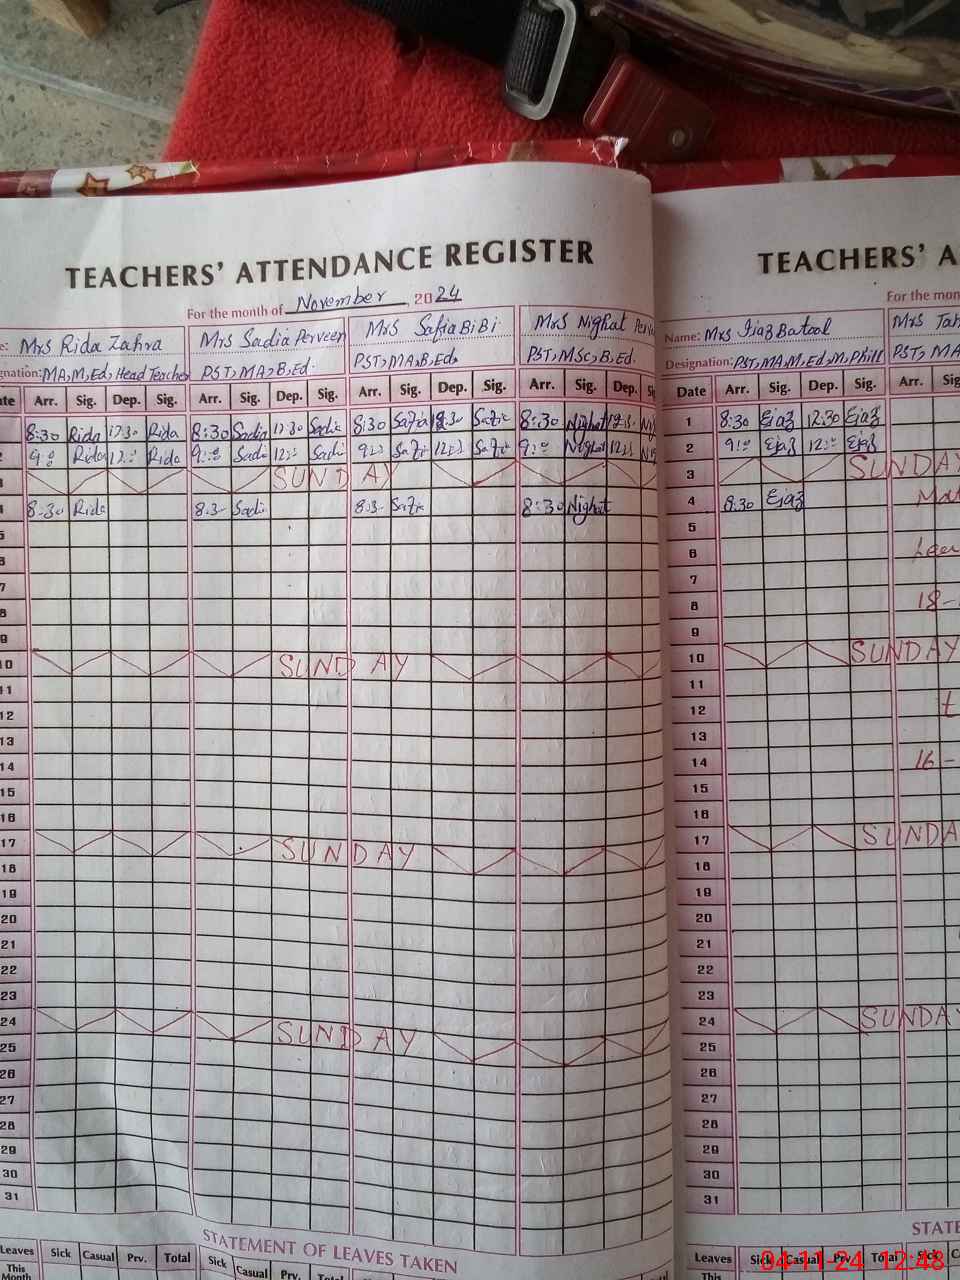 TEACHERS' ATTENDANCE REGISTER
For the month of November, 2024
Mrs Rida Zahra Mrs Sadia Perveen Mrs Safia BiBi Mrs Nighat
MA, M, Ed, Head Teacher PST, MA, B, Ed. PST, MA, B, Ed, PST, MSc, B, Ed.
Arr. Sig. Dep. Sig. Arr. Sig. Dep. Sig. Arr. Sig. Dep. Sig. Arr. Sig. Dep.
8:30 Rida 12:30 Rida 8:30 Sadia 12:30 Sadia 8:30 Safia 12:30 Safia 8:30 Nighat 12:30
9:00 Rida 12:00 Rida 9:00 Sadi 12:00 Sadi 9:00 Safi 12:00 Safi 9:00 Nighat 12:00
SUNDAY
8:30 Rida 8:30 Sadi 8:30 Safi 8:30 Nighat
10 SUNDAY
11
12
13
14
15
16
17 SUNDAY
18
19
20
21
22
23
24 SUNDAY
25
26
27
28
29
30
31
STATEMENT OF LEAVES TAKEN
Leaves Sick Casual Prv. Total Sick Casual Prv.
This
Month
TEACHERS' A
For the
Name: Mrs Ijaz Batool Mrs
Designation: PST, MA, M, Ed, M, Phill PST, MA
Date Arr. Sig. Dep. Sig. Arr.
1 8:30 Ejaz 12:30 Ejaz
2 9:00 Ejaz 12:00 Ejaz
3 SUNDAY
4 8:30 Ejaz
5
6
7
8 18-
9
10 SUNDAY
11
12
13
14 16-
15
16
17 SUNDA
18
19
20
21
22
23
24 SUNDAY
25
26
27
28
29
30
31
Leaves Sick Casual Prv. Total Sick
This
04-11-24 12:48